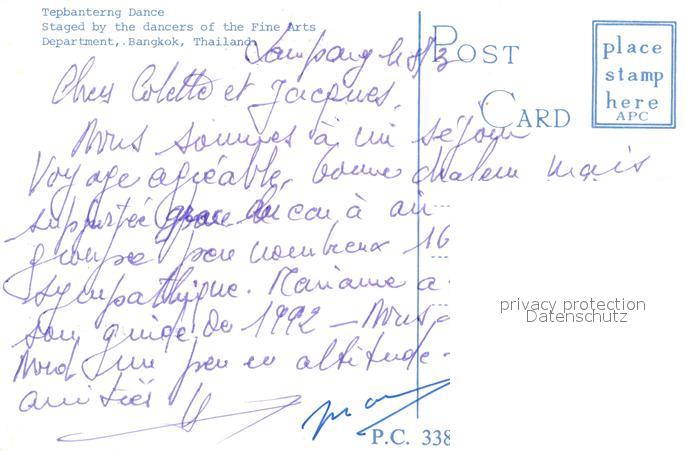 Tepbanterng Dance
Staged by the dancers of the Fine Arts
Department,.Bangkok, Thailand
Lampang le 8/3
POST
CARD
place
stamp
here
APC
Chers Colette et Jacques,
Nous sommes à mi séjour
Voyage agréable, bonne chaleur mais
supportée à un
groupe peu nombreux 16
sympathique. Marianne a
son guide de 1992 - Nous
Nord un peu en altitude -
amitiés
privacy protection
Datenschutz
P.C. 338